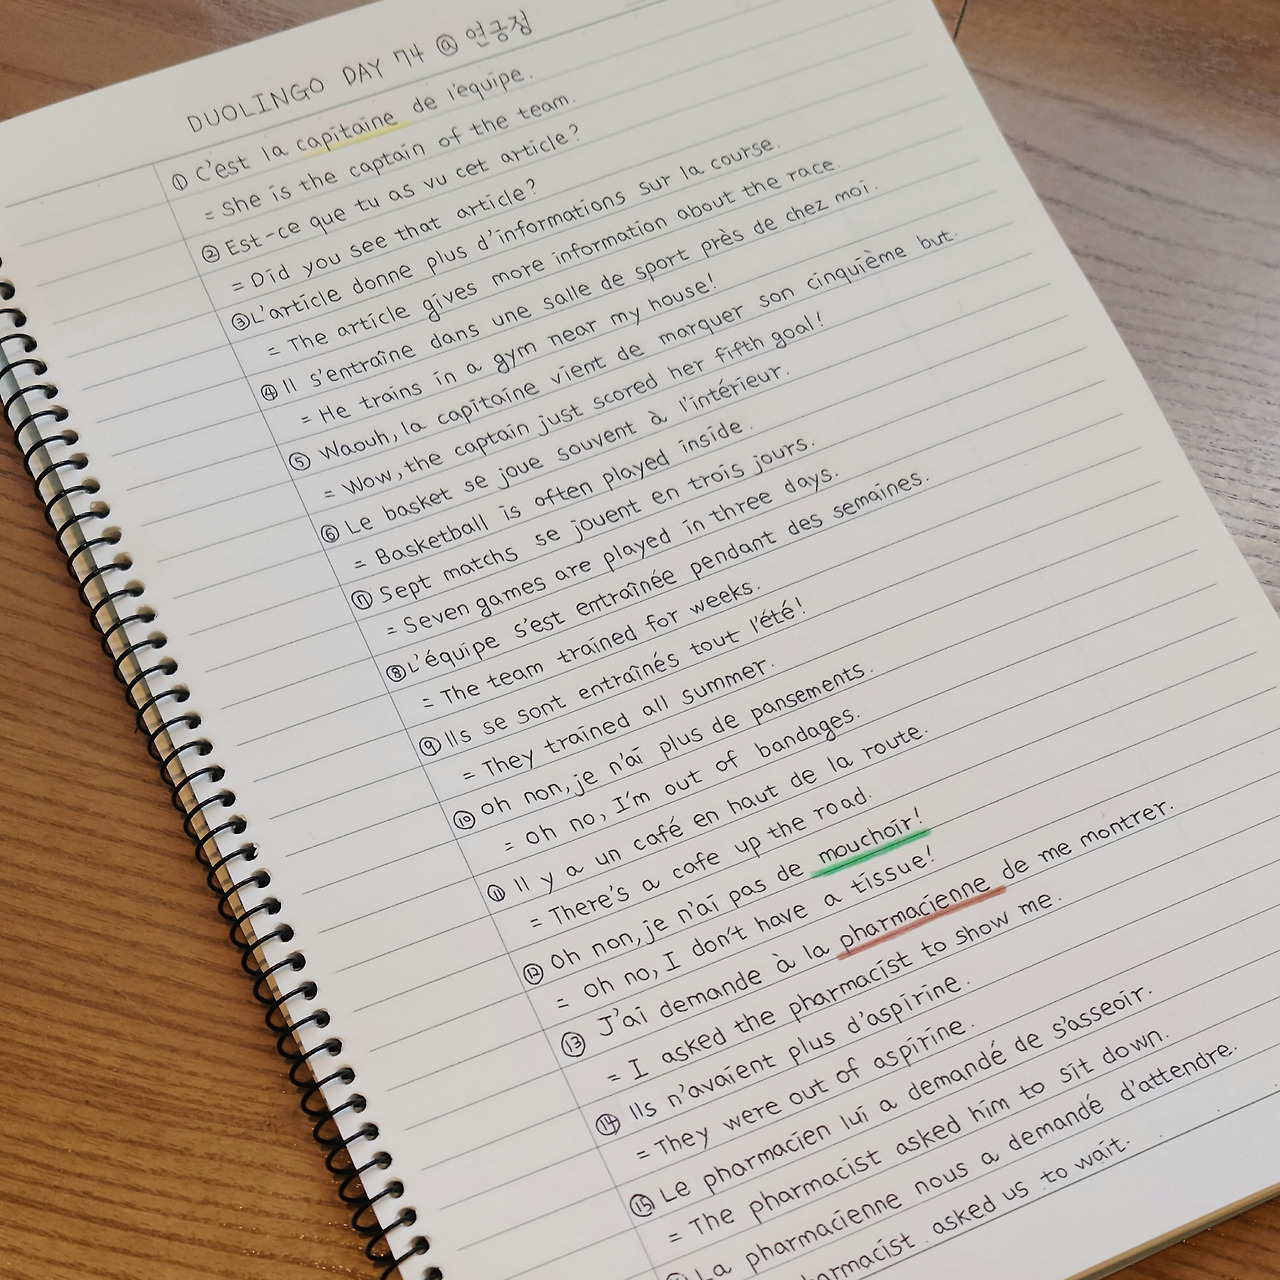 DUOLINGO DAY 74 @ 연긍정
① C'est la capitaine de l'équipe.
= She is the captain of the team.
② Est-ce que tu as vu cet article?
= Did you see that article?
③ L'article donne plus d'informations sur la course.
= The article gives more information about the race.
④ Il s'entraîne dans une salle de sport près de chez moi.
= He trains in a gym near my house!
⑤ Waouh, la capitaine vient de marquer son cinquième but.
= Wow, the captain just scored her fifth goal!
⑥ Le basket se joue souvent à l'intérieur.
= Basketball is often played inside.
⑦ Sept matchs se jouent en trois jours.
= Seven games are played in three days.
⑧ L'équipe s'est entraînée pendant des semaines.
= The team trained for weeks.
⑨ Ils se sont entraînés tout l'été!
= They trained all summer.
⑩ Oh non, je n'ai plus de pansements.
= Oh no, I'm out of bandages.
⑪ Il y a un café en haut de la route.
= There's a cafe up the road.
⑫ Oh non, je n'ai pas de mouchoir!
= Oh no, I don't have a tissue!
⑬ J'ai demande à la pharmacienne de me montrer.
= I asked the pharmacist to show me.
⑭ Ils n'avaient plus d'aspirine.
= They were out of aspirine.
⑮ Le pharmacien lui a demandé de s'asseoir.
= The pharmacist asked him to sit down.
La pharmacienne nous a demandé d'attendre.
asked us to wait.